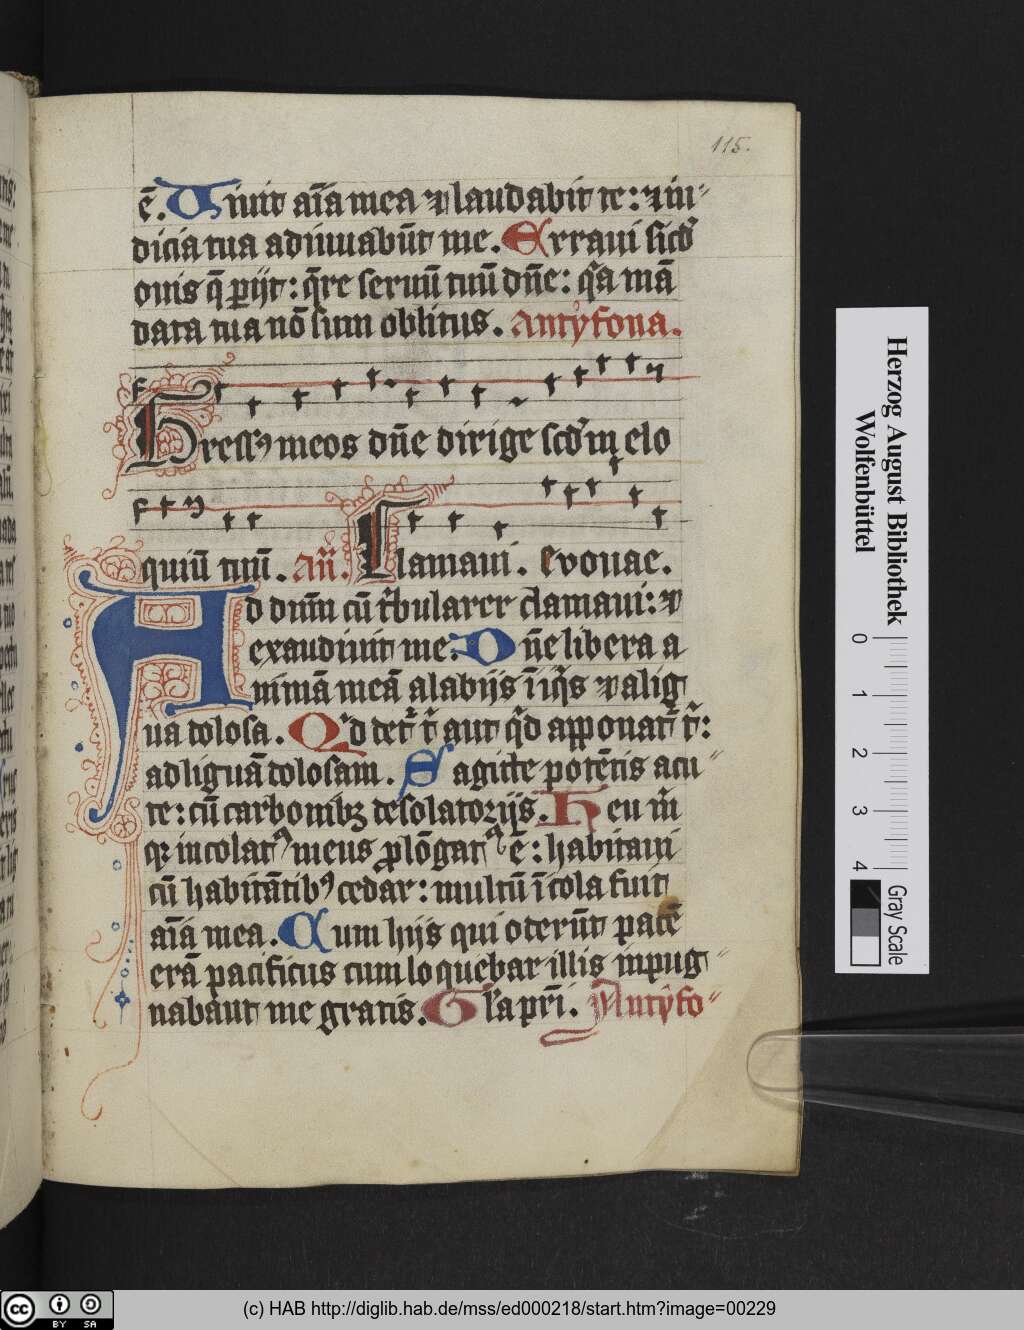 115.
ē. Uiuit aīa mea ⁊ laudabit te: ⁊ iu
dicia tua adiuuabūt me. Erraui sicđ
ouis q̄ ꝑijt: q̄re seruū tuū dn̄e: q̄a mā
data tua nō sum oblitus. Antyfona.
Gressꝰ meos dn̄e dirige scđm elo
quiū tuū. Añ. Clamaui. Evouae.
Ad dnm̄ cū t̄bularer clamaui: ⁊
exaudiuit me. Dn̄e libera a
nimā meā a labijs īiq̄s ⁊ a lig
ua dolosa. Qᵈ det᷑ t̄ aut qᵈ apponat᷑ t̄:
ad liguā dolosam. Sagitte potētis acu
te: cū carbonibꝫ desolatorijs. Heu m̄
qꝛ incolatꝰ meus ꝓlōgatꝰ ē: habitaui
cū habitātibꝰ cedar: multū īcola fuit
aīa mea. Cum hijs qui oderūt pacē
erā pacificus cum loquebar illis inpug
nabant me gratis. Gl̄a pr̄i. Antyfo
Herzog August Bibliothek
Wolfenbüttel
0 1 2 3 4
Gray Scale
cc BY SA
(c) HAB http://diglib.hab.de/mss/ed000218/start.htm?image=00229